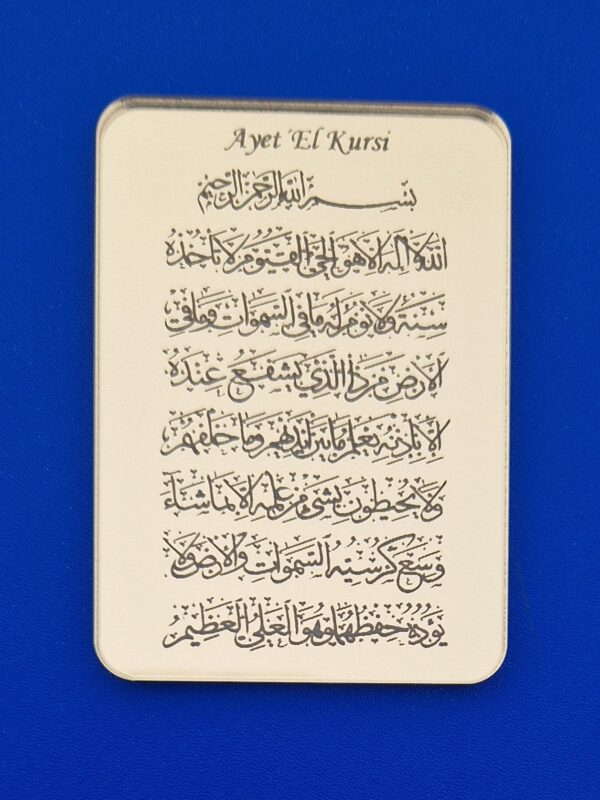 Ayet El Kursi
بسم الله الرحمن الرحيم
الله لا اله الا هو الحي القيوم لا تأخذه
سنة ولا نوم له ما في السموات وما في
الارض من ذا الذي يشفع عنده
الا باذنه يعلم ما بين ايديهم وما خلفهم
ولا يحيطون بشئ من علمه الا بما شاء
وسع كرسيه السموات والارض ولا
يؤده حفظهما وهو العلي العظيم